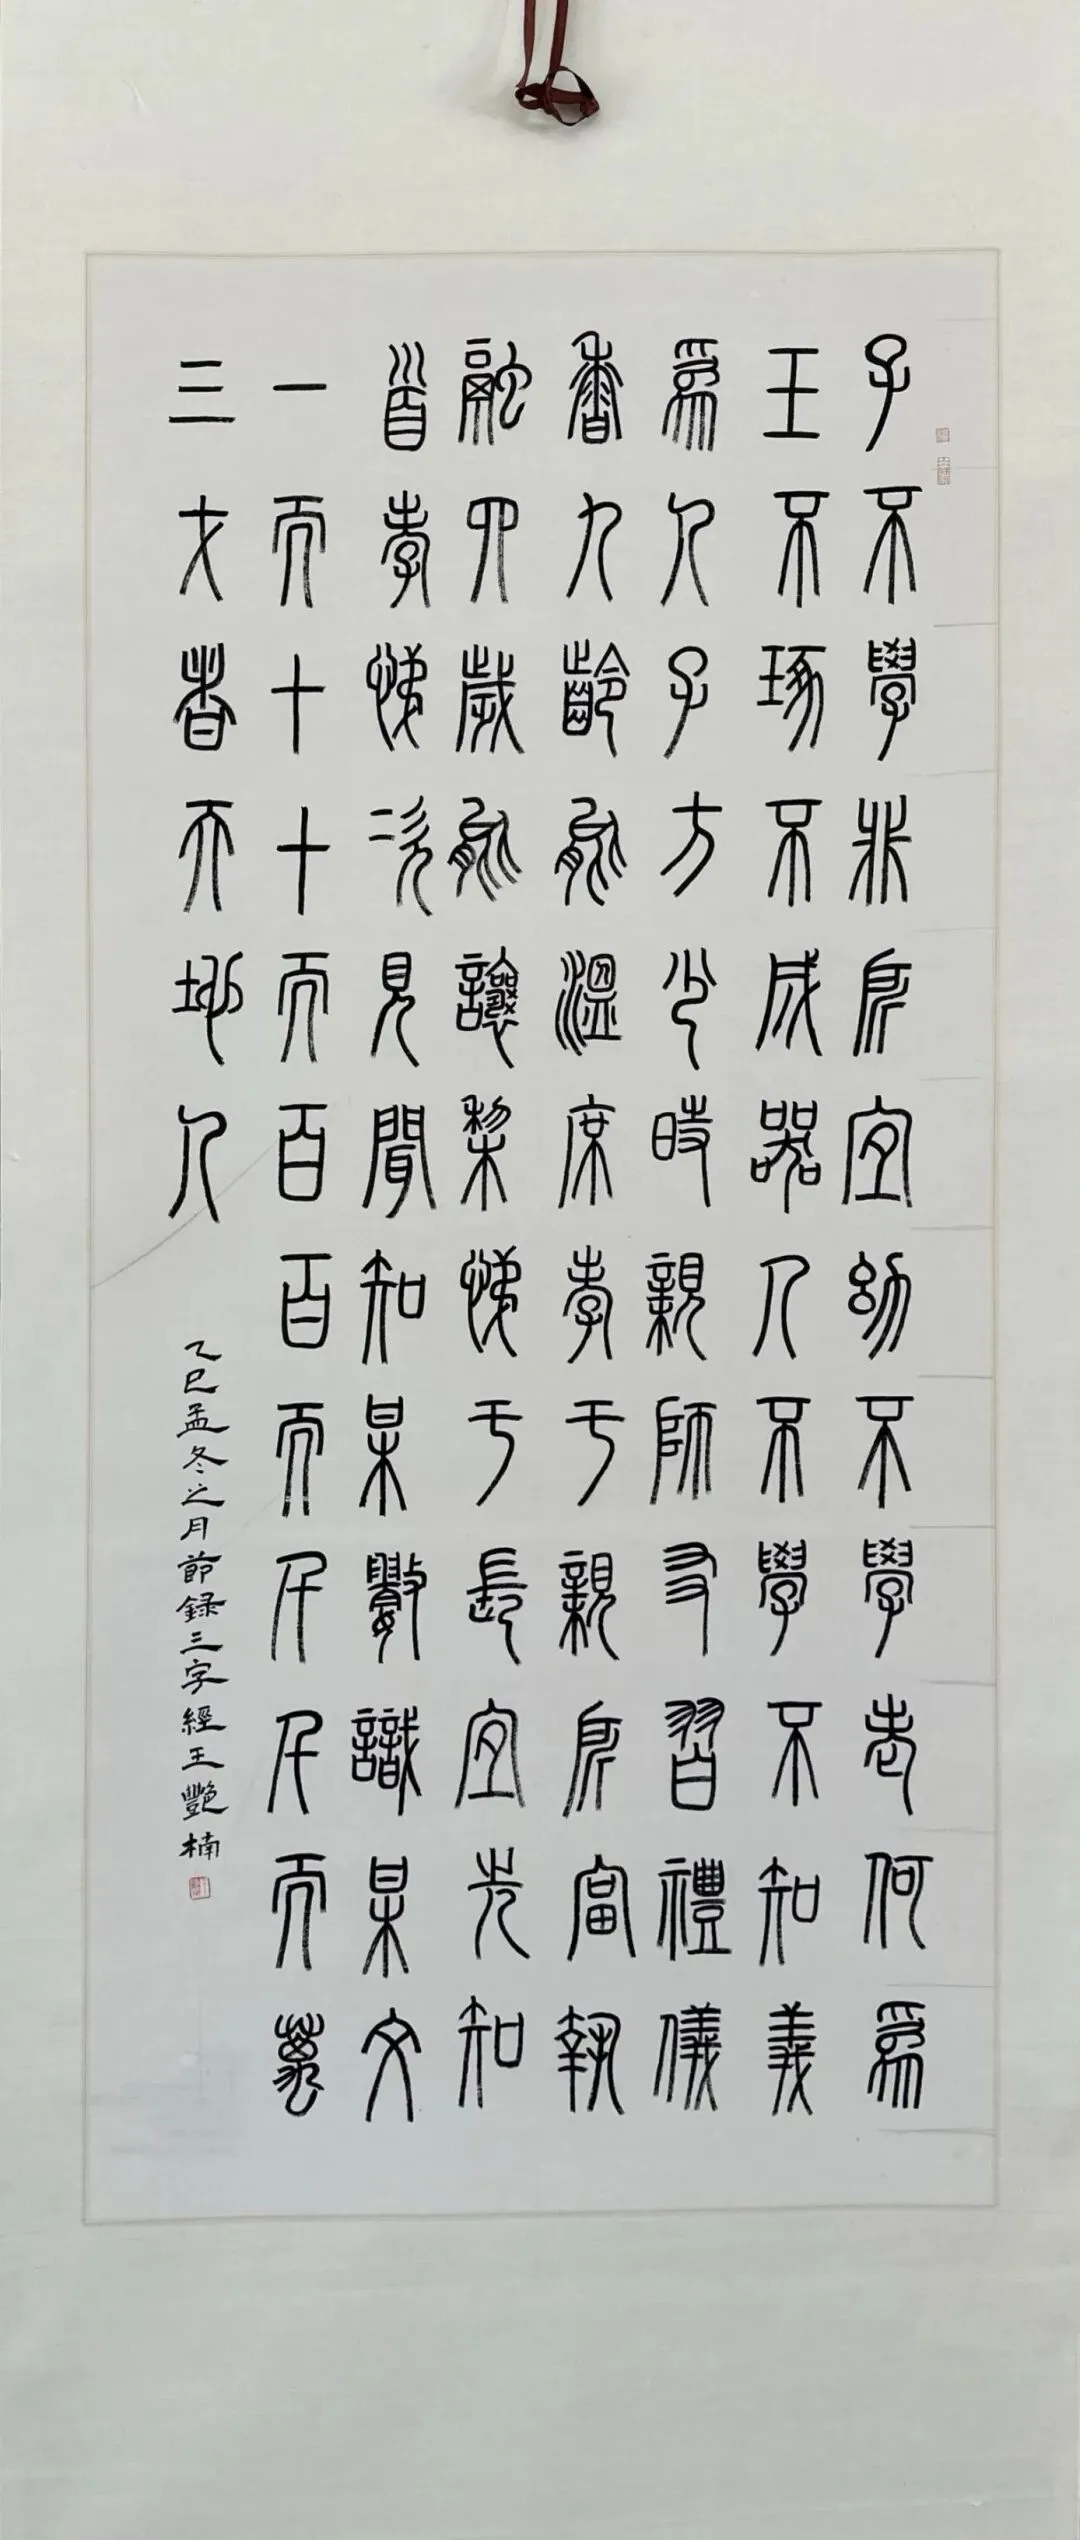 子不學非所宜幼不學老何為
玉不琢不成器人不學不知義
為人子方少時親師友習禮儀
香九齡能溫席孝于親所當執
融四歲能讓梨悌于長宜先知
首孝悌次見聞知某數識某文
一而十十而百百而千千而萬
三才者天地人
乙巳孟冬之月節錄三字經王艷楠